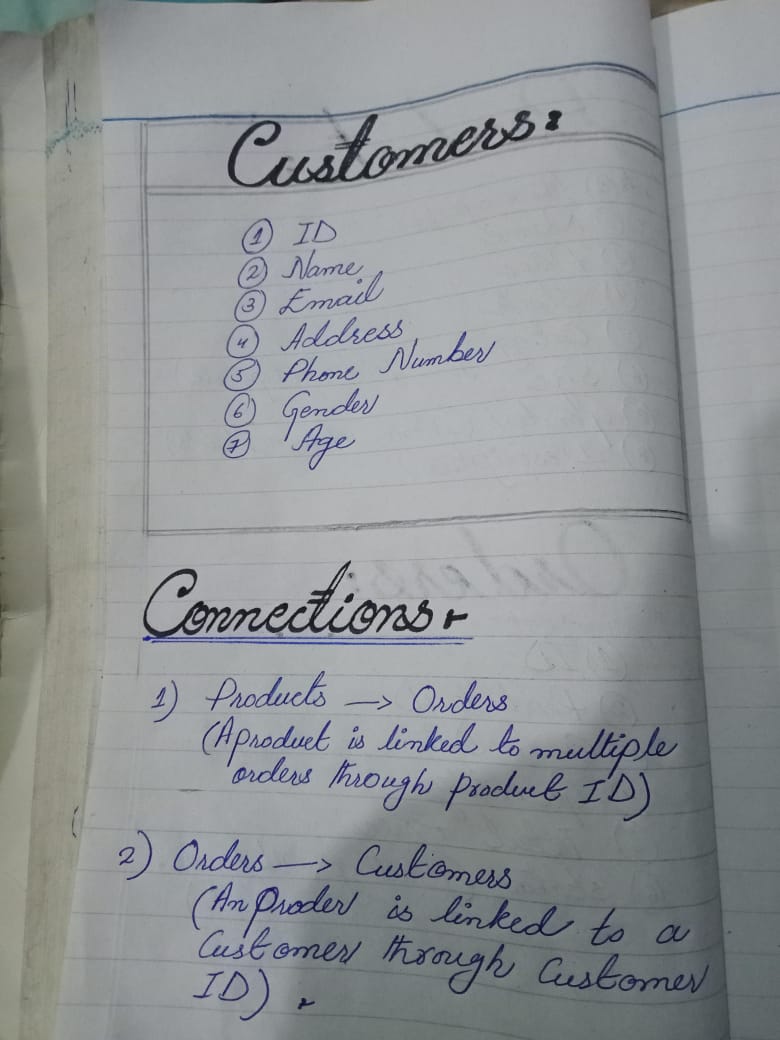 Customers:
① ID
② Name
③ Email
④ Address
⑤ Phone Number
⑥ Gender
⑦ Age
Connections:
1) Products → Orders
(A product is linked to multiple
orders through product ID)
2) Orders → Customers
(An Proder is linked to a
Customer through Customer
ID).